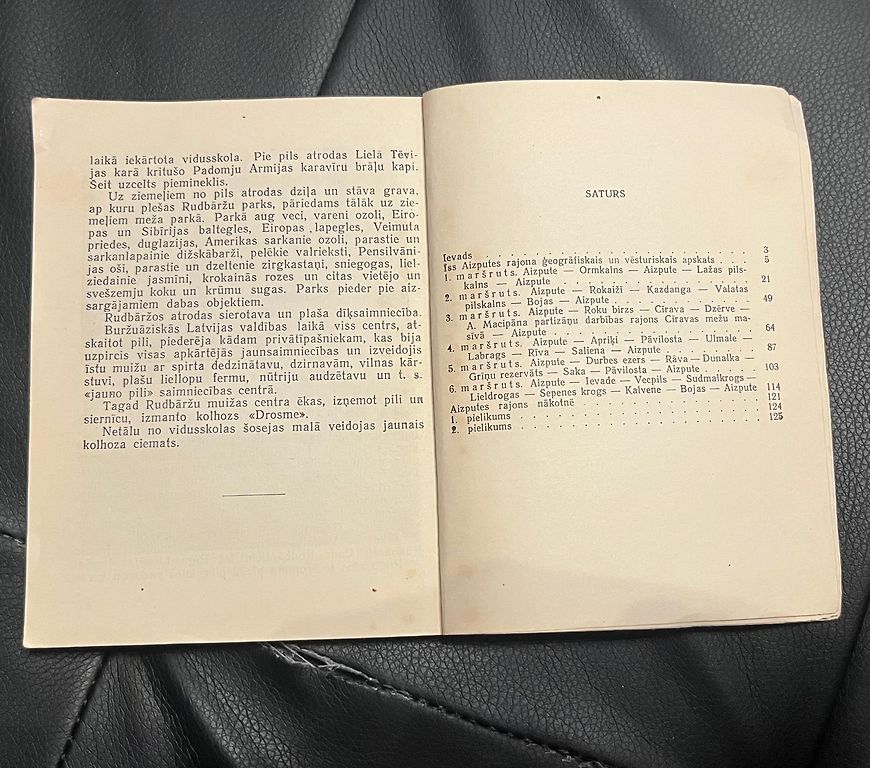 laikā iekārtota vidusskola. Pie pils atrodas Lielā Tēvi-
jas karā kritušo Padomju Armijas karavīru brāļu kapi.
Šeit uzcelts piemineklis.
Uz ziemeļiem no pils atrodas dziļa un stāva grava,
ap kuru plešas Rudbāržu parks, pāriedams tālāk uz zie-
meļiem meža parkā. Parkā aug veci, vareni ozoli, Eiro-
pas un Sibīrijas baltegles, Eiropas lapegles, Veimuta
priedes, duglazijas, Amerikas sarkanie ozoli, parastie un
sarkanlapainie dižskābarži, pelēkie valrieksti, Pensilvāni-
jas oši, parastie un dzeltenie zirgkastaņi, sniegogas, liel-
ziedainie jasmīni, krokainās rozes un citas vietējo un
svešzemju koku un krūmu sugas. Parks pieder pie aiz-
sargājamiem dabas objektiem.
Rudbāržos atrodas sierotava un plaša dīķsaimniecība.
Buržuāziskās Latvijas valdības laikā viss centrs, at-
skaitot pili, piederēja kādam privātīpašniekam, kas bija
uzpircis visas apkārtējās jaunsaimniecības un izveidojis
īstu muižu ar spirta dedzinātavu, dzirnavām, vilnas kār-
stuvi, plašu liellopu fermu, nūtriju audzētavu un t. s.
«jauno pili» saimniecības centrā.
Tagad Rudbāržu muižas centra ēkas, izņemot pili un
siernīcu, izmanto kolhozs «Drosme».
Netālu no vidusskolas šosejas malā veidojas jaunais
kolhoza ciemats.
SATURS
Ievads . . . . . . . . . . 3
Īss Aizputes rajona ģeogrāfiskais un vēsturiskais apskats . . . 5
1. maršruts. Aizpute — Ormkalns — Aizpute — Lažas pils-
kalns — Aizpute . . . . . . . . . . 21
2. maršruts. Aizpute — Rokaiži — Kazdanga — Valatas
pilskalns — Bojas — Aizpute . . . . . . . . 49
3. maršruts. Aizpute — Roku birzs — Cīrava — Dzērve —
A. Macipāna partizāņu darbības rajons Cīravas mežu ma-
sīvā — Aizpute . . . . . . . . . . 64
4. maršruts. Aizpute — Apriķi — Pāvilosta — Ulmale —
Labrags — Rīva — Saliena — Aizpute . . . . . . 87
5. maršruts. Aizpute — Durbes ezers — Rāva — Dunalka —
Grīņu rezervāts — Saka — Pāvilosta — Aizpute . . . . 103
6. maršruts. Aizpute — Ievade — Vecpils — Sudmalkrogs —
Lieldrogas — Sepenes krogs — Kalvene — Bojas — Aizpute 114
Aizputes rajons nākotnē . . . . . . . . . 121
1. pielikums . . . . . . . . . . 124
2. pielikums . . . . . . . . . . 125